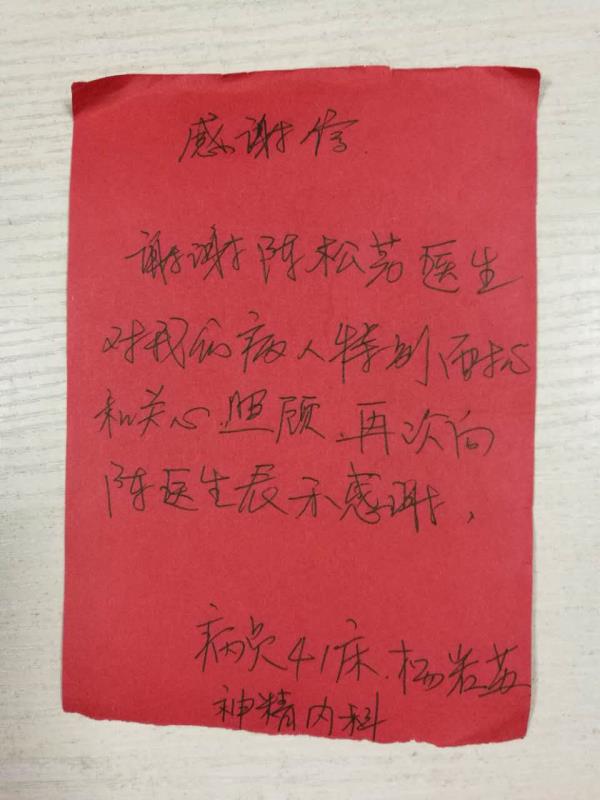 感谢信
谢谢陈松若医生
对我们病人特别而耐心
和关心.照顾.再次向
陈医生表示感谢,
病员41床.杨岩英
神精内科